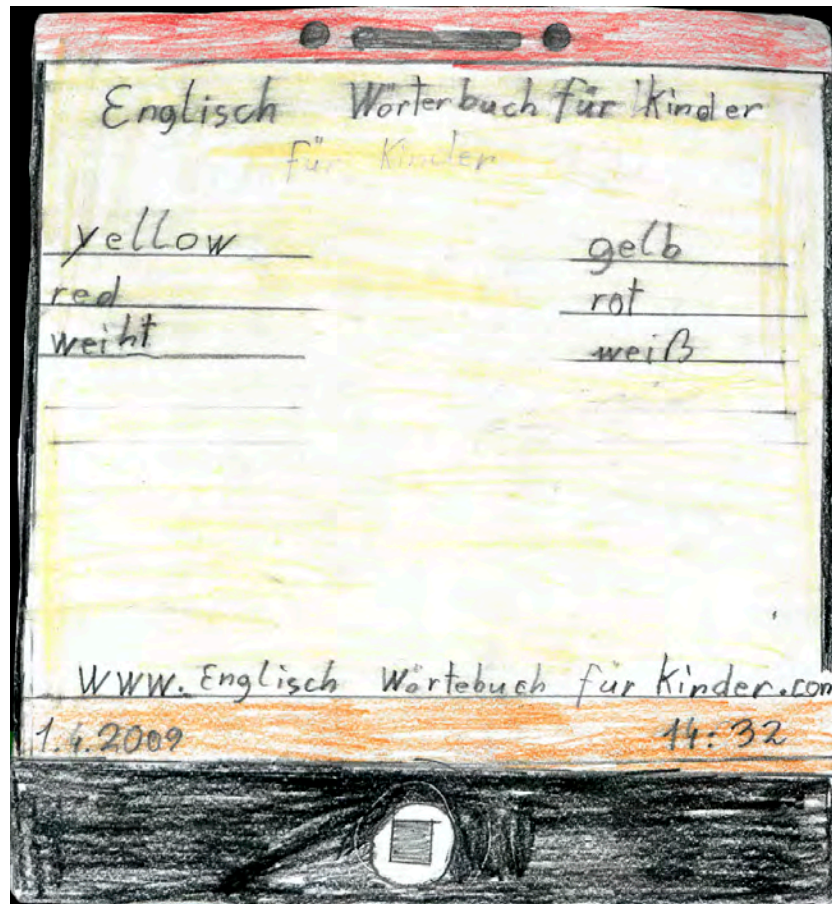 Englisch Wörterbuch für Kinder
für Kinder
yellow gelb
red rot
weiht weiß
www.Englisch Wörtebuch für Kinder.com
1.4.2009 14:32